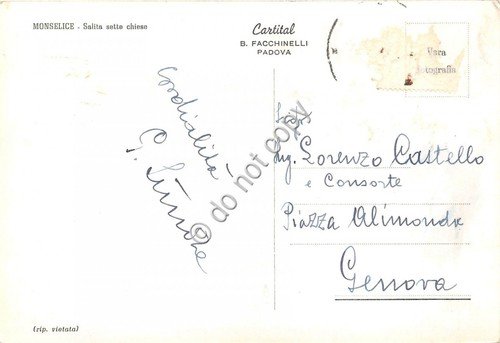 MONSELICE - Salita sette chiese
Cartital
B. FACCHINELLI
PADOVA
Vera
fotografia
cordialità
G.
Ing. Lorenzo Castello
e Consorte
Piazza Alimonda
Genova
(rip. vietata)
© do not copy